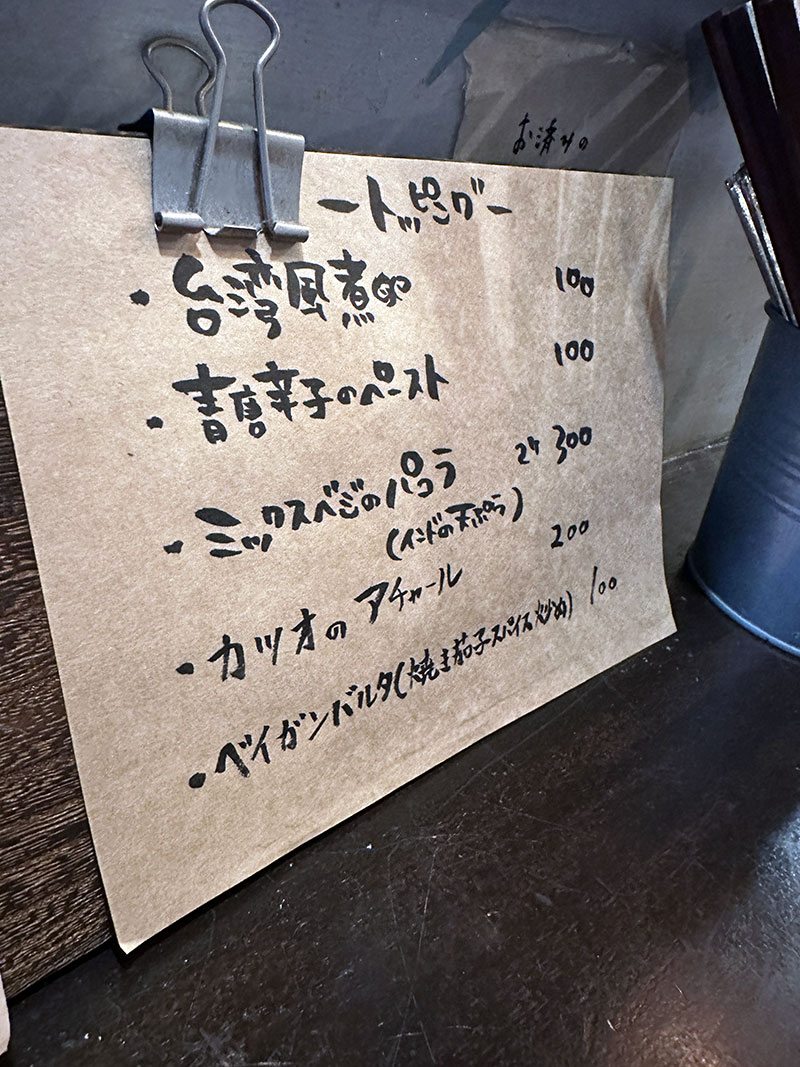 お済みの
ートッピングー
・台湾風煮卵 100
・青唐辛子のペースト 100
・ミックスベジのパコラ 2ケ 300
(インドの天ぷら)
・カツオのアチャール 200
・ベイガンバルタ(焼き茄子スパイス炒め) 100